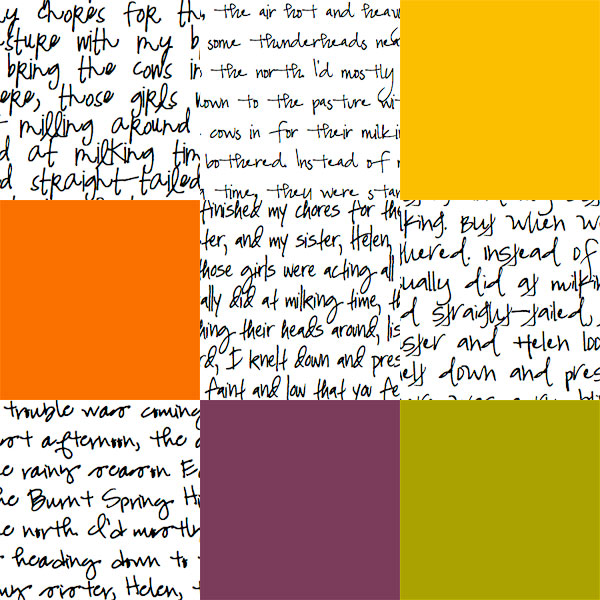 y chores for th
sture with my b
bring the cows in
ere, those girls
milling around
d at milking tim
d straight-tailed
the air hot and heav
some thunderheads nea
the north. I'd mostly
down to the pasture wi
cows in for their milki
bothered. Instead of m
time, they were star
finished my chores for the
ter, and my sister, Helen,
hose girls were acting all
ally did at milking time, th
hing their heads around, lis
rd, I knelt down and pres
faint and low that you fe
king. But when we
hered. Instead of
ually did at milkin
d straight-tailed,
ster and Helen loo
elt down and pres
trouble was coming
ot afternoon, the a
e rainy season Ea
he Burnt Spring Hi
e north. I'd mostly
heading down to t
my sister, Helen, t